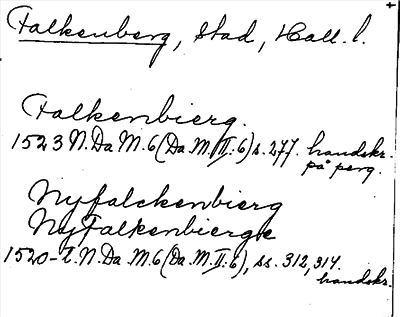 Falkenberg, Stad, Hall. l.
Falkenbierg.
1523 N. Da M. 6 (Da. M. II: 6) s. 277. handskr.
på perg.
Nyfalckenbierg
Nyfalkenbierge
1520-2. N. Da. M. 6 (Da. M. II: 6), ss. 312, 314.
handskr.